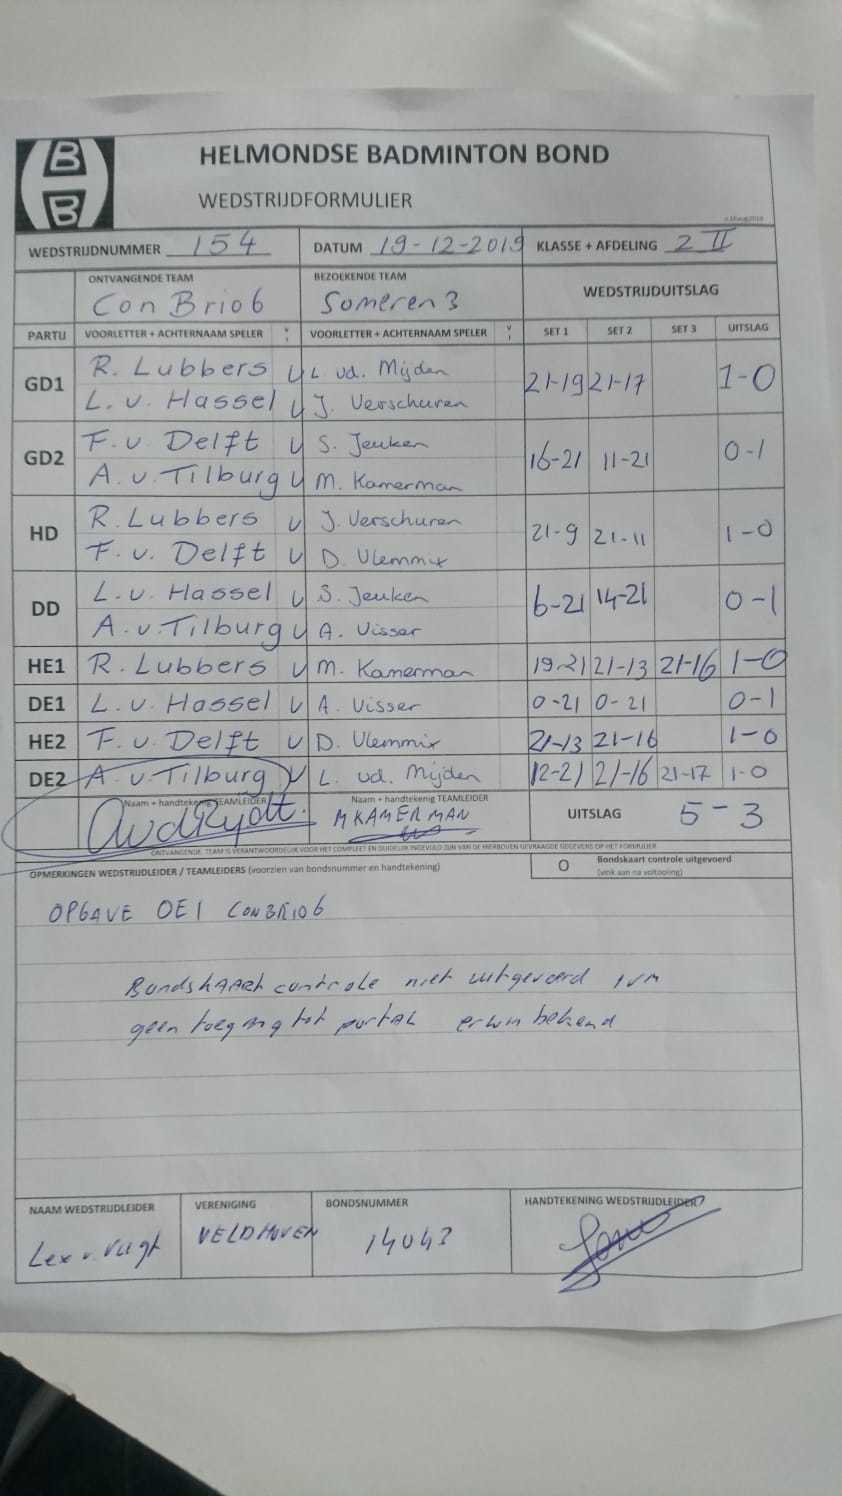 HELMONDSE BADMINTON BOND
WEDSTRIJDFORMULIER
WEDSTRIJDNUMMER 154 DATUM 19-12-2019 KLASSE + AFDELING 2 II
ONTVANGENDE TEAM BEZOEKENDE TEAM WEDSTRIJDUITSLAG
Con Brio 6 Someren 3
PARTIJ VOORLETTER + ACHTERNAAM SPELER V VOORLETTER + ACHTERNAAM SPELER V SET 1 SET 2 SET 3 UITSLAG
GD1 R. Lubbers V L. vd. Mijden 21-19 21-17 1-0
L. v. Hassel V J. Verschuren
GD2 F. v. Delft V S. Jeuken 16-21 11-21 0-1
A. v. Tilburg V M. Kamerman
HD R. Lubbers V J. Verschuren 21-9 21-11 1-0
F. v. Delft V D. Vlemmix
DD L. v. Hassel V S. Jeuken 6-21 14-21 0-1
A. v. Tilburg V A. Visser
HE1 R. Lubbers V M. Kamerman 19-21 21-13 21-16 1-0
DE1 L. v. Hassel V A. Visser 0-21 0-21 0-1
HE2 F. v. Delft V D. Vlemmix 21-13 21-16 1-0
DE2 A. v. Tilburg V L. vd. Mijden 12-21 21-16 21-17 1-0
Naam + handtekenig TEAMLEIDER Naam + handtekenig TEAMLEIDER
MKAMERMAN UITSLAG 5-3
ONTVANGENDE TEAM IS VERANTWOORDELIJK VOOR HET COMPLEET EN DUIDELIJK INGEVULD ZIJN VAN DE HIERBOVEN GEVRAAGDE GEGEVENS OP HET FORMULIER
OPMERKINGEN WEDSTRIJDLEIDER / TEAMLEIDERS (voorzien van bondsnummer en handtekening) O Bondskaart controle uitgevoerd
(vink aan na voltooiing)
OPGAVE DE1 CONBRIO6
Bondskaart controle niet uitgevoerd ivm
geen toegang tot portal erwin bekend
NAAM WEDSTRIJDLEIDER VERENIGING BONDSNUMMER HANDTEKENING WEDSTRIJDLEIDER
Lex v. Vugt VELDHOVEN 14043